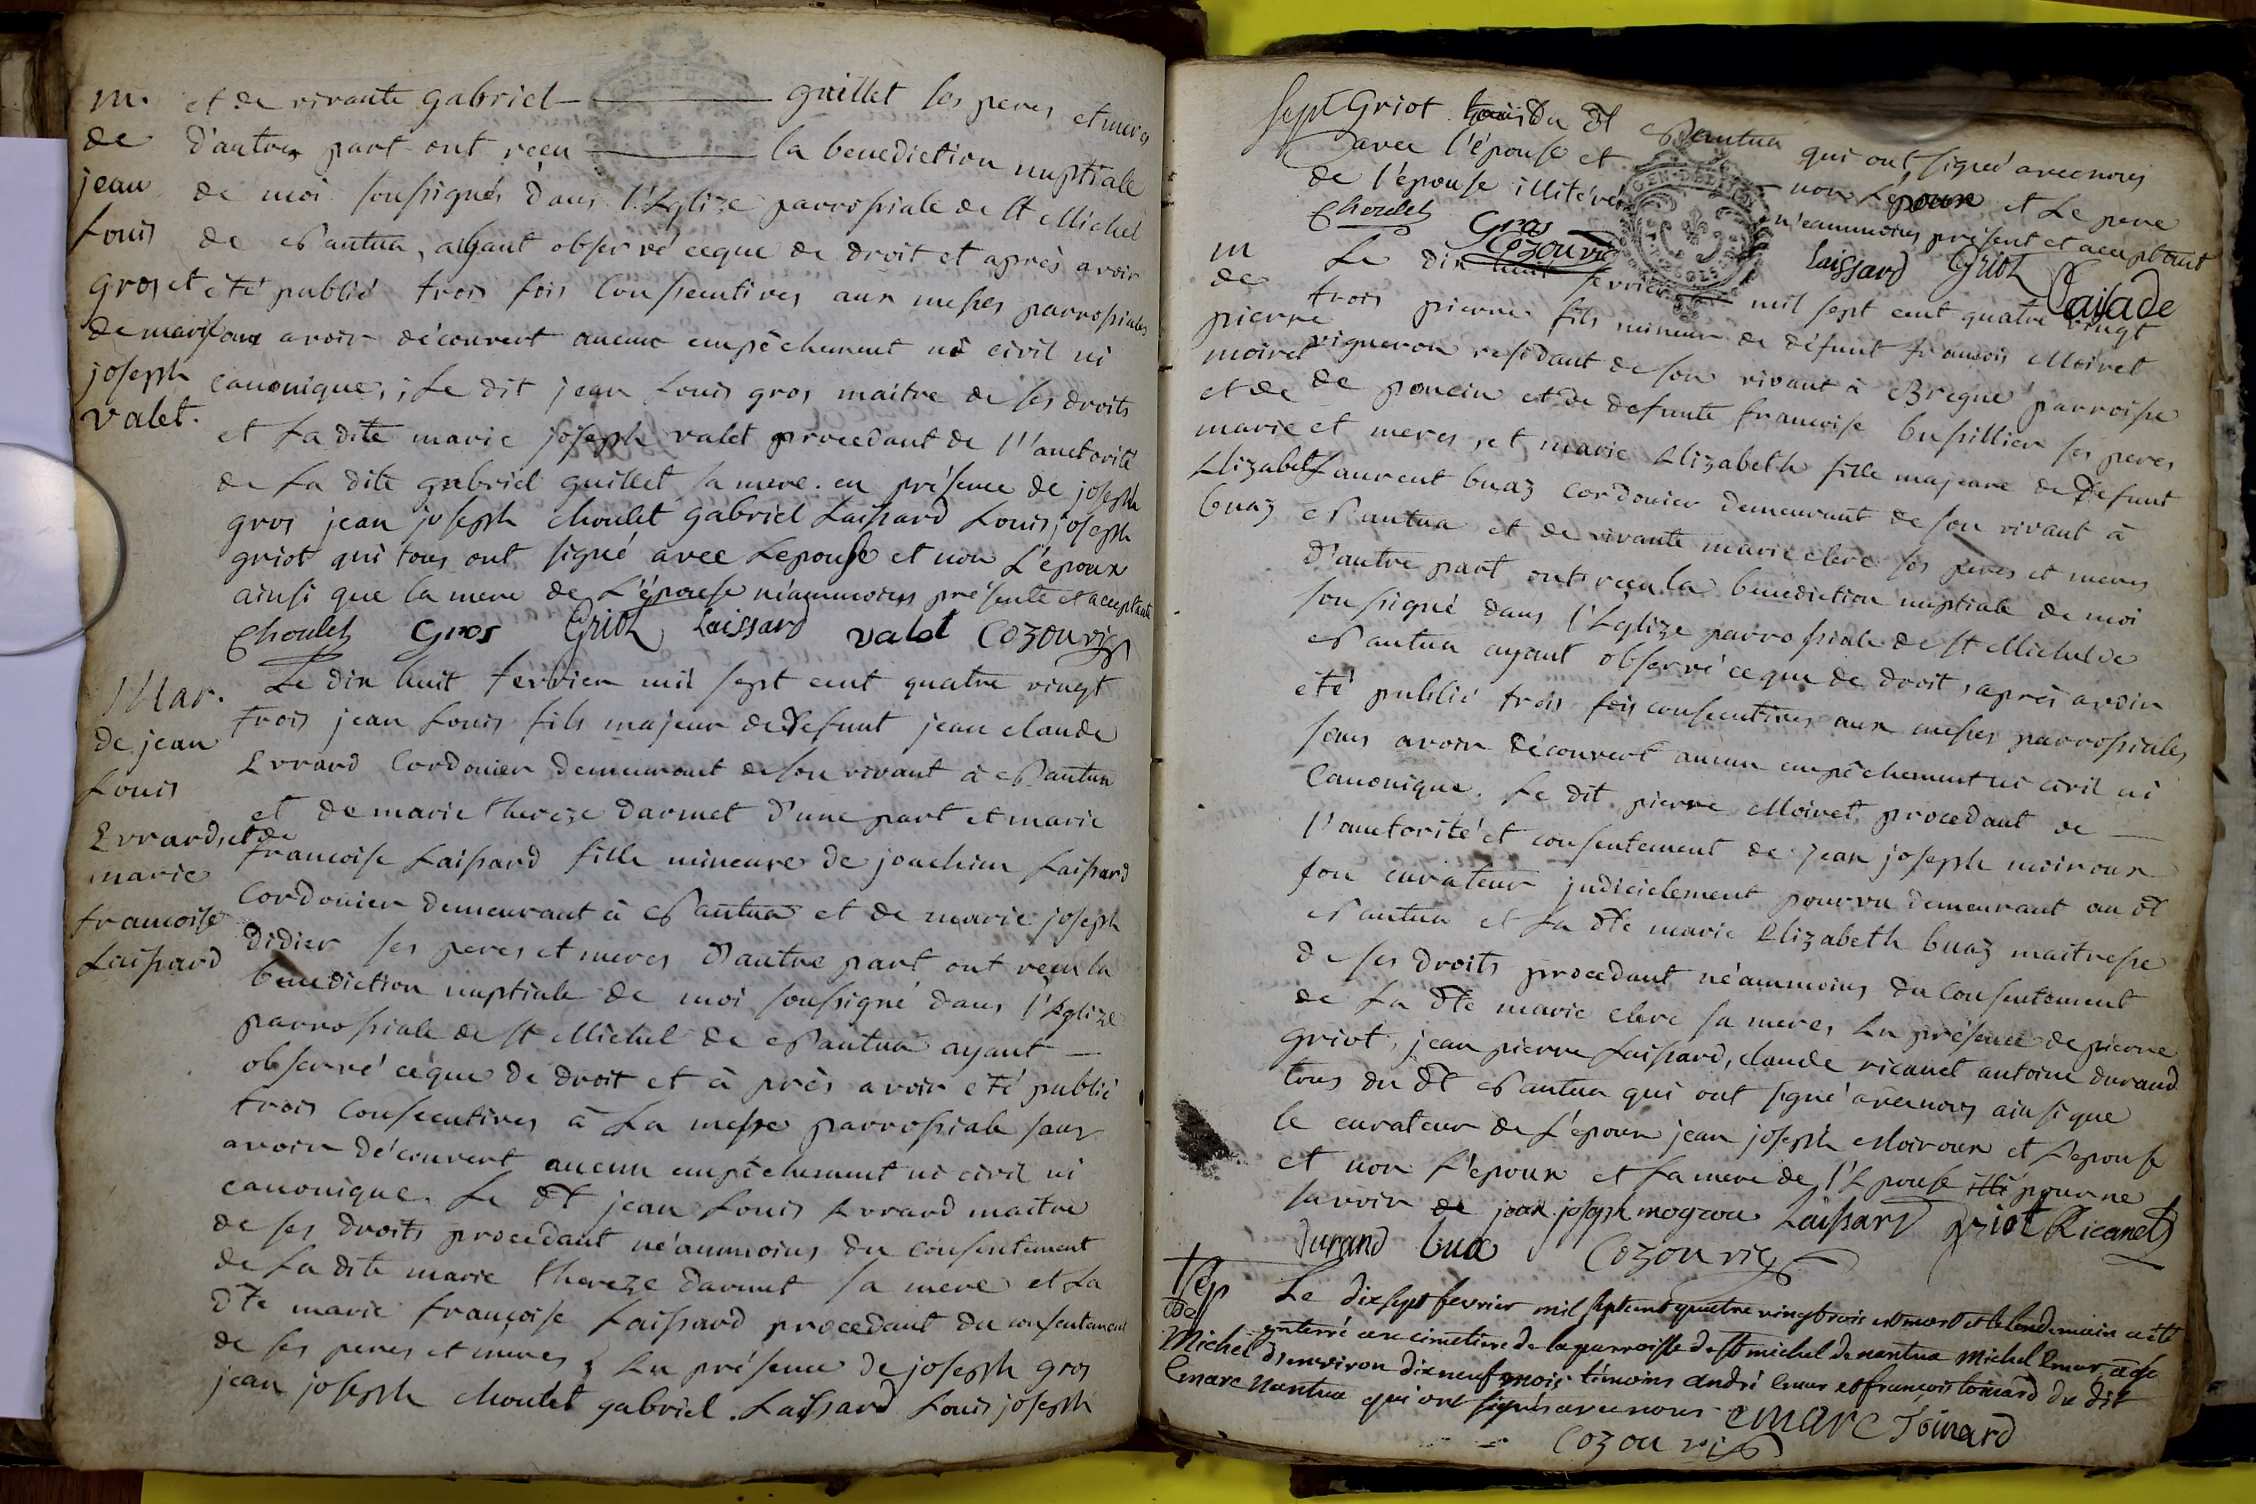 m.
de
jean
Louis
gros et
de marie
joseph
valet.
et de vivante gabriel guillet ses peres et meres
d'autre part ont reçu la benediction nuptiale
de moi soussignés dans l'Eglize parrossiale de St Michel
de Nantua, aÿant observé ceque de droit et après avoir
été publié trois fois consecutives aux messes parrossiales
sans avoir découvert aucune empêchement ni civil ni
canonique; Le dit jean Louis gros maitre de ses droits
et La dite marie joseph valet procedant de l'auctorité
de La dite gabriel guillet sa mere. en présence de joseph
gros jean joseph choulet gabriel Laissard Louis joseph
griot qui tous ont signé avec Lepouse et non L'époux
ainsi que la mere de L'épouse néammoins présente et acceptante
Choulet gros Griot Laissard valet Cozon vic
Mar.
de jean
Louis
Evrard, et de
marie
francoise
Laissard
Le dix huit fevrier mil sept cent quatre vingt
trois jean Louis fils majeur de Defunt jean claude
Evrard Cordonier demeurant de son vivant à Nantua
et de marie thereze darmet d'une part et marie
francoise Laissard fille mineure de joachim Laissard
Cordonier demeurant à Nantua et de marie joseph
didier ses peres et meres D'autre part ont reçu la
benediction nuptiale de moi soussigné dans l'Eglize
parrossiale de St Michel de Nantua ayant
observé ceque de droit et à près avoir été publié
trois Consecutives à La messe parrossiale sans
avoir découvert aucun empêchement ni civil ni
canonique. Le dt jean Louis Evrard maitre
de ses droits procedant né'ammoins du consentement
de La dite marie thereze darmet sa mere et La
dte marie françoise Laissard procedant du consentement
de ses peres et meres, En présence de joseph gros
jean joseph choulet gabriel Laissard Louis joseph
sept Griot du dt Nantua qui ont signé avec nous
avec l'épouse et non L'époux et Le pere
de l'épouse illitéré n'eammoins présent et acceptant
Choulet gros Laissard Griot
Cozon vic
m
de
pierre
moiret
et de
marie
Elizabet
buaz
Le dix huit fevrier mil sept cent quatre vingt
trois pierre fils mineur de défunt francois Moiret
vigneron residant de son vivant à Bregne parroisse
de poncin et de defunte francoise bussillier ses peres
et meres, et marie Elizabeth fille majeure de Defunt
Laurent buaz cordonier demeurant de son vivant à
Nantua et de vivante marie clerc ses peres et meres
D'autre part ont recu la bénédiction nuptiale de moi
soussigné dans l'Eglize parrossiale de St Michel de
Nantua ayant observé ce que de droit, après avoir
été publié trois fois consecutives aux messes parrossiales
sans avoir découvert aucun empêchement ni civil ni
Canonique. Le dit pierre Moiret procedant de
l'auctorité et consentement de jean joseph moiroux
son curateur judicielement pourvu demeurant au dt
Nantua et La dte marie Elizabeth buaz maitresse
de ses droits procedant né'ammoins du Consentement
de La dte marie clerc sa mere, En présence de pierre
Griot, jean pierre Laissard, claude ricanet antoine durand
tous du dt Nantua qui ont signé avec nous ainsi que
le curateur de L'époux jean joseph Moiroux et L'epouse
et non L'epoux et La mere de l'Epouse pour ne
savoir jean joseph Laissard griot Ricanet
Durand bua Cozon vic
Sep
de
Michel
Emarc
Le dix sept fevrier mil sept cent quatre vingt trois est mort et le lendemain a été
enterré au cimetiere de la parroisse de st michel de nantua Michel Emar agé
d'environ dix neuf mois témoins andré Emar et françois toinard du dit
Nantua qui ont signés avec nous. Emarc Toinard
Cozon vic